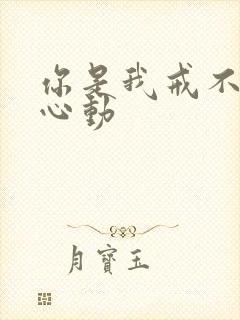 你是我戒不
心動
月寶玉